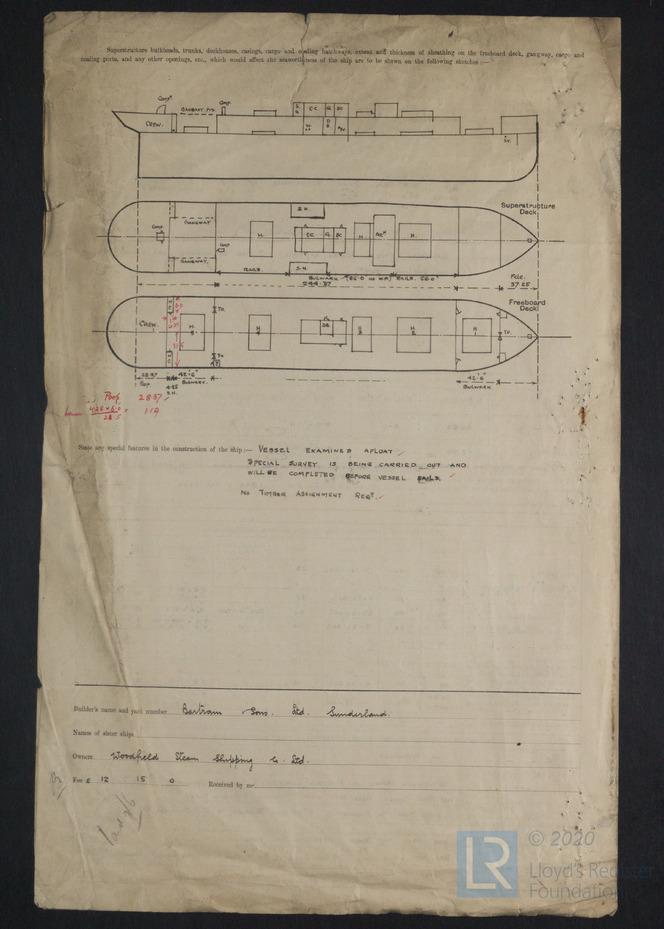 Superstructure bulkheads, trunks, deckhouses, casings, cargo and coaling hatchways, extent and thickness of sheathing on the freeboard deck, gangway, cargo and
coaling ports, and any other openings, etc., which would affect the seaworthiness of the ship are to be shewn on the following sketches :—
Compn
Comp
CREW.
Superstructure
Deck.
GANGWAY
H.
H.
H.
GANGWAY
RAILS.
BULWARK
244.37
Fcle.
37.25
Freeboard
Deck
CREW.
28.37
Poop
42'-6"
BULWARK.
42'-6"
BULWARK
Poop 28.37
State any special features in the construction of the ship:— VESSEL EXAMINED AFLOAT
SPECIAL SURVEY IS BEING CARRIED OUT AND
WILL BE COMPLETED BEFORE VESSEL SAILS.
NO TIMBER ASSIGNMENT REQD.
Builder's name and yard number Bartram Sons. Ltd. Sunderland.
Names of sister ships
Owners Woodfield Steam Shipping Co. Ltd.
Fee £ 12 15 0 Received by me
LR
© 2020
Lloyd's Register
Foundation